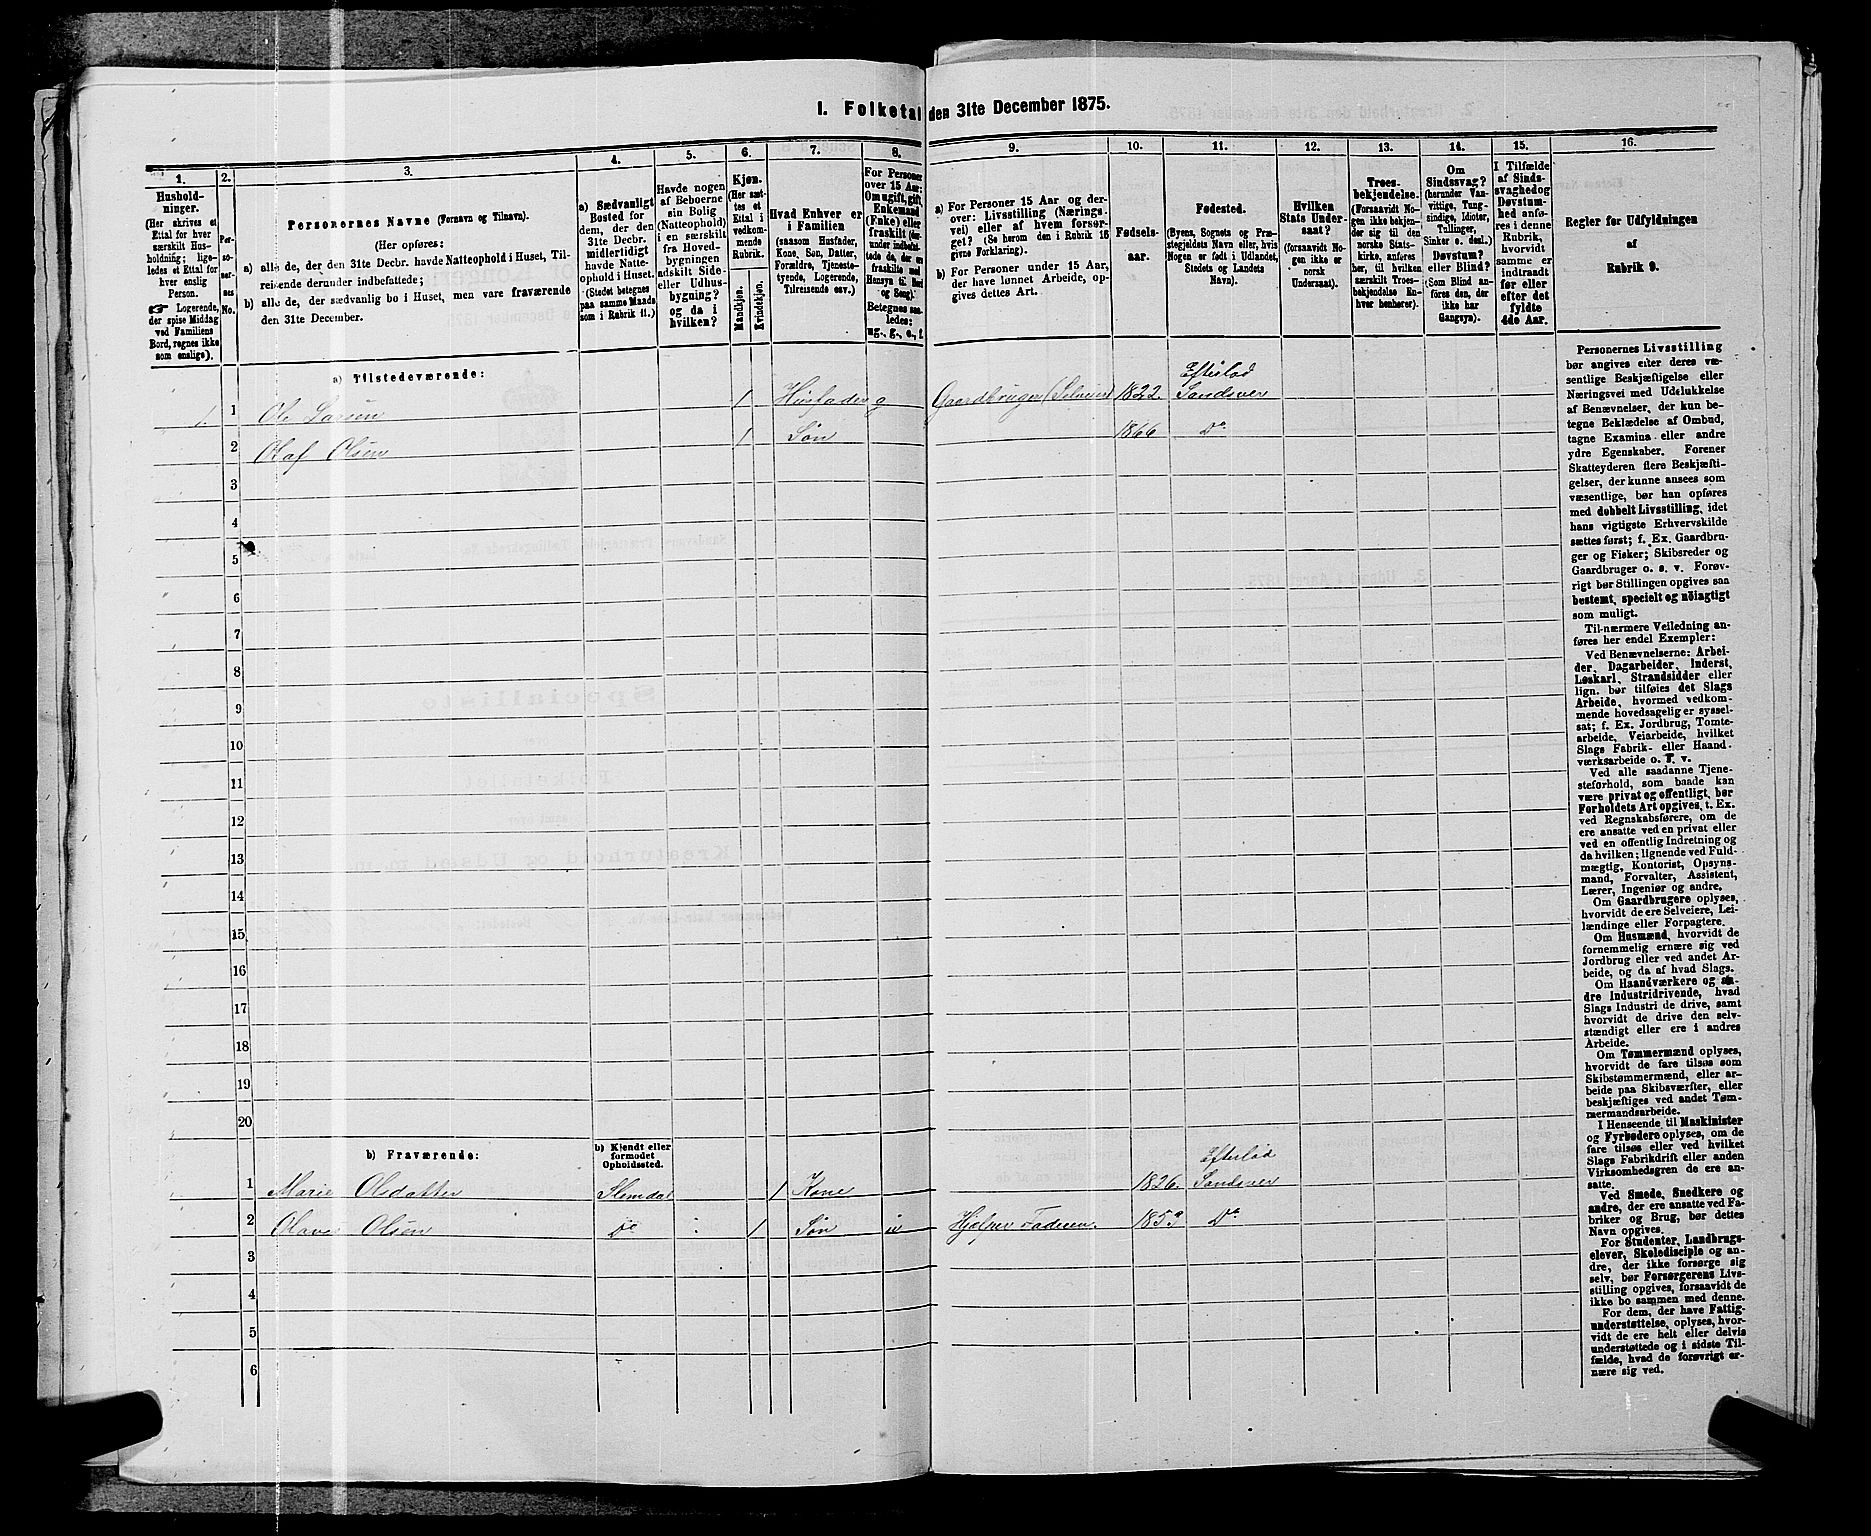 I. Folketal den 31te December 1875.
1.
Hushold-
ninger.
(Her skrives et
Ettal for hver
særskilt Hus-
holdning; lige-
ledes et Ettal for
hver enslig
Person.
Logerende,
der spise Middag
ved Familiens
Bord, regnes ikke
som enslige).
2.
Per-
so-
ner-
nes
No.
3.
Personernes Navne (Fornavn og Tilnavn).
(Her opføres:
a) alle de, der den 31te Decbr. havde Natteophold i Huset, Til-
reisende derunder indbefattede;
b) alle de, der sædvanlig bo i Huset, men vare fraværende
den 31te December.
4.
a) Sædvanligt
Bosted for
dem, der den
31te Decbr.
midlertidigt
havde Natte-
ophold i Huset.
(Stedet betegnes
paa samme Maade
som i Rubrik 11.)
5.
Havde nogen
af Beboerne
sin Bolig
(Natteophold)
i en særskilt
fra Hoved-
bygningen
adskilt Side-
eller Udhus-
bygning?
og da i
hvilken?
6.
Kjøn.
(Her sæt-
tes et
Ettal i
vedkom-
mende
Rubrik.
Mandkjøn.
Kvindekjøn.
7.
Hvad Enhver er
i Familien
(saasom Husfader,
Kone, Søn, Datter,
Forældre, Tjeneste-
tyende, Logerende,
Tilreisende osv.)
8.
For Personer
over 15 Aar:
Om ugift, gift,
Enkemand
(Enke) eller
fraskilt (her-
under indbefat-
tede de, der ere
fraskilte med
Hensyn til Bord
og Seng).
Betegnes saa-
ledes:
ug., g., e., f.
9.
a) For Personer 15 Aar og der-
over: Livsstilling (Nærings-
vei) eller af hvem forsør-
get? (Se herom den i Rubrik 16
givne Forklaring).
b) For Personer under 15 Aar,
der have lønnet Arbeide, op-
gives dettes Art.
10.
Fødsels-
aar.
11.
Fødested.
(Byens, Sognets og Præ-
stegjeldets Navn eller, hvis
Nogen er født i Udlandet,
Stedets og Landets
Navn).
12.
Hvilken
Stats Under-
saat?
(forsaavidt No-
gen ikke er
norsk
Undersaat).
13.
Troes-
bekjendelse.
(Forsaavidt No-
gen ikke bekjen-
der sig til den
norske Stats-
kirke, anføres
her, til hvilken
særskilt Troes-
bekjendelse En-
hver henhører).
14.
Om
Sindssvag?
(herunder Van-
vittige, Tung-
sindige, Idioter,
Tullinger,
Sinker o. desl.)
Døvstum?
eller Blind?
(Som Blind an-
føres den, der
ikke har
Gangsyn).
15.
I Tilfælde
af Sinds-
svaghed og
Døvstum-
hed anfø-
res i denne
Rubrik,
hvorvidt
samme er
indtraadt
før eller
efter det
fyldte
4de Aar.
16.
Regler for Udfyldningen
af
Rubrik 9.
a) Tilstedeværende:
Efteslød
1. 1 Ole Larsen 1 Husfader g Gaardbruger (Selveier) 1822 Sandsver
2 Olaf Olsen 1 Søn 1866 Do
3
4
5
6
7
8
9
10
11
12
13
14
15
16
17
18
19
20
b) Fraværende:
b) Kjendt eller
formodet
Opholdssted.
Efteslød
1 Marie Olsdatter Slemdal 1 Kone 1826 Sandsver
2 Olava Olsen Do 1 Søn u Hjelper Faderen. 1853 Do
3
4
5
6
Personernes Livsstilling
bør angives efter deres væ-
sentlige Beskjæftigelse eller
Næringsvei med Udelukkelse
af Benævnelser, der kun be-
tegne Beklædelse af Ombud,
tagne Examina eller andre
ydre Egenskaber. Forener
Skatteyderen flere Beskjæfti-
gelser, der kunne ansees som
væsentlige, bør han opføres
med dobbelt Livsstilling, idet
hans vigtigste Erhvervskilde
sættes først; f. Ex. Gaardbru-
ger og Fisker; Skibsreder og
Gaardbruger o. s. v. Forøv-
rigt bør Stillingen opgives saa
bestemt, specielt og nöiagtigt
som muligt.
Til nærmere Veiledning an-
føres her endel Exempler:
Ved Benævnelserne: Arbei-
der, Dagarbeider, Inderst,
Løskarl, Strandsidder eller
lign. bør tilføies det Slags
Arbeide, hvormed vedkom-
mende hovedsagelig er syssel-
sat; f. Ex. Jordbrug, Tomte-
arbeide, Veiarbeide, hvilket
Slags Fabrik- eller Haand-
værksarbeide o. s. v.
Ved alle saadanne Tjene-
steforhold, som baade kan
være privat og offentligt, bør
Forholdets Art opgives, t. Ex.
ved Regnskabsførere, om de
ere ansatte ved en privat eller
ved en offentlig Indretning og
da hvilken; lignende ved Fuld-
mægtig, Kontorist, Opsyns-
mand, Forvalter, Assistent,
Lærer, Ingeniør og andre.
Om Gaardbrugere oplyses,
hvorvidt de ere Selveiere, Lei-
lændinge eller Forpagtere.
Om Husmænd, hvorvidt de
fornemmelig ernære sig ved
Jordbrug eller ved andet Ar-
beide, og da af hvad Slags.
Om Haandværkere og an-
dre Industridrivende, hvad
Slags Industri de drive, samt
hvorvidt de drive den selv-
stændigt eller ere i andres
Arbeide.
Om Tømmermænd oplyses,
hvorvidt de fare tilsøs som
Skibstømmermænd, eller ar-
beide paa Skibsværfter, eller
beskjæftiges ved andet Tøm-
mermandsarbeide.
I Henseende til Maskinister
og Fyrbødere oplyses, om de
fare tilsøs eller ved hvilket
Slags Fabrikdrift eller anden
Virksomhedsgren de ere an-
satte.
Ved Smede, Snedkere og
andre, der ere ansatte ved Fa-
briker og Brug, bør dettes
Navn opgives.
For Studenter, Landbrugs-
elever, Skoledisciple og an-
dre, der ikke forsørge sig
selv, bør Forsørgerens Livs-
stilling opgives, forsaavidt de
ikke bo sammen med denne.
For dem, der have Fattig-
understøttelse, oplyses, hvor-
vidt de ere helt eller delvis
understøttede og i sidste Til-
fælde, hvad de forøvrigt er-
nære sig ved.